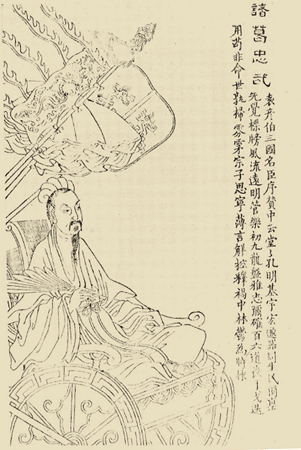 諸葛忠武
袁彥伯三國名臣序贊中云堂々孔明基宇宏邈器同生民獨稟
先覺標牓風流遠明管樂初九龍盤雅志彌確百六道喪干戈迭
用苟非命世孰掃雰雺宗子思寧薄言解控釋褐中林鬱為時棟